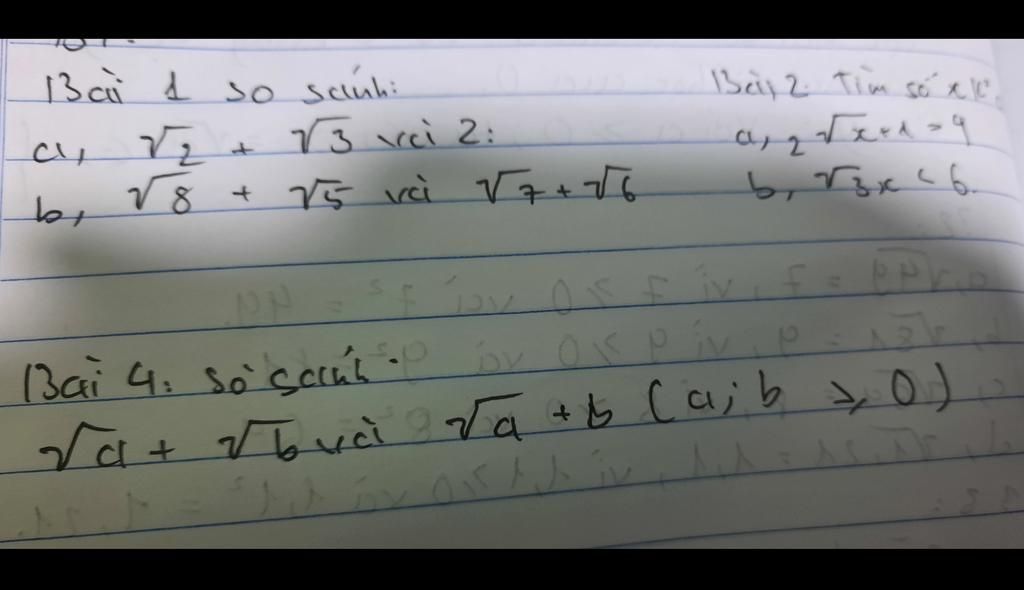 Bài 1 so sánh:
a, √2 + √3 và 2:
b, √8 + √5 và √7 + √6
Bài 2. Tìm số x
a, 2√x+1 = 4
b, √3x < 6.
Bài 4: so sánh.
√a + √b và √a + b (a; b ≥ 0)